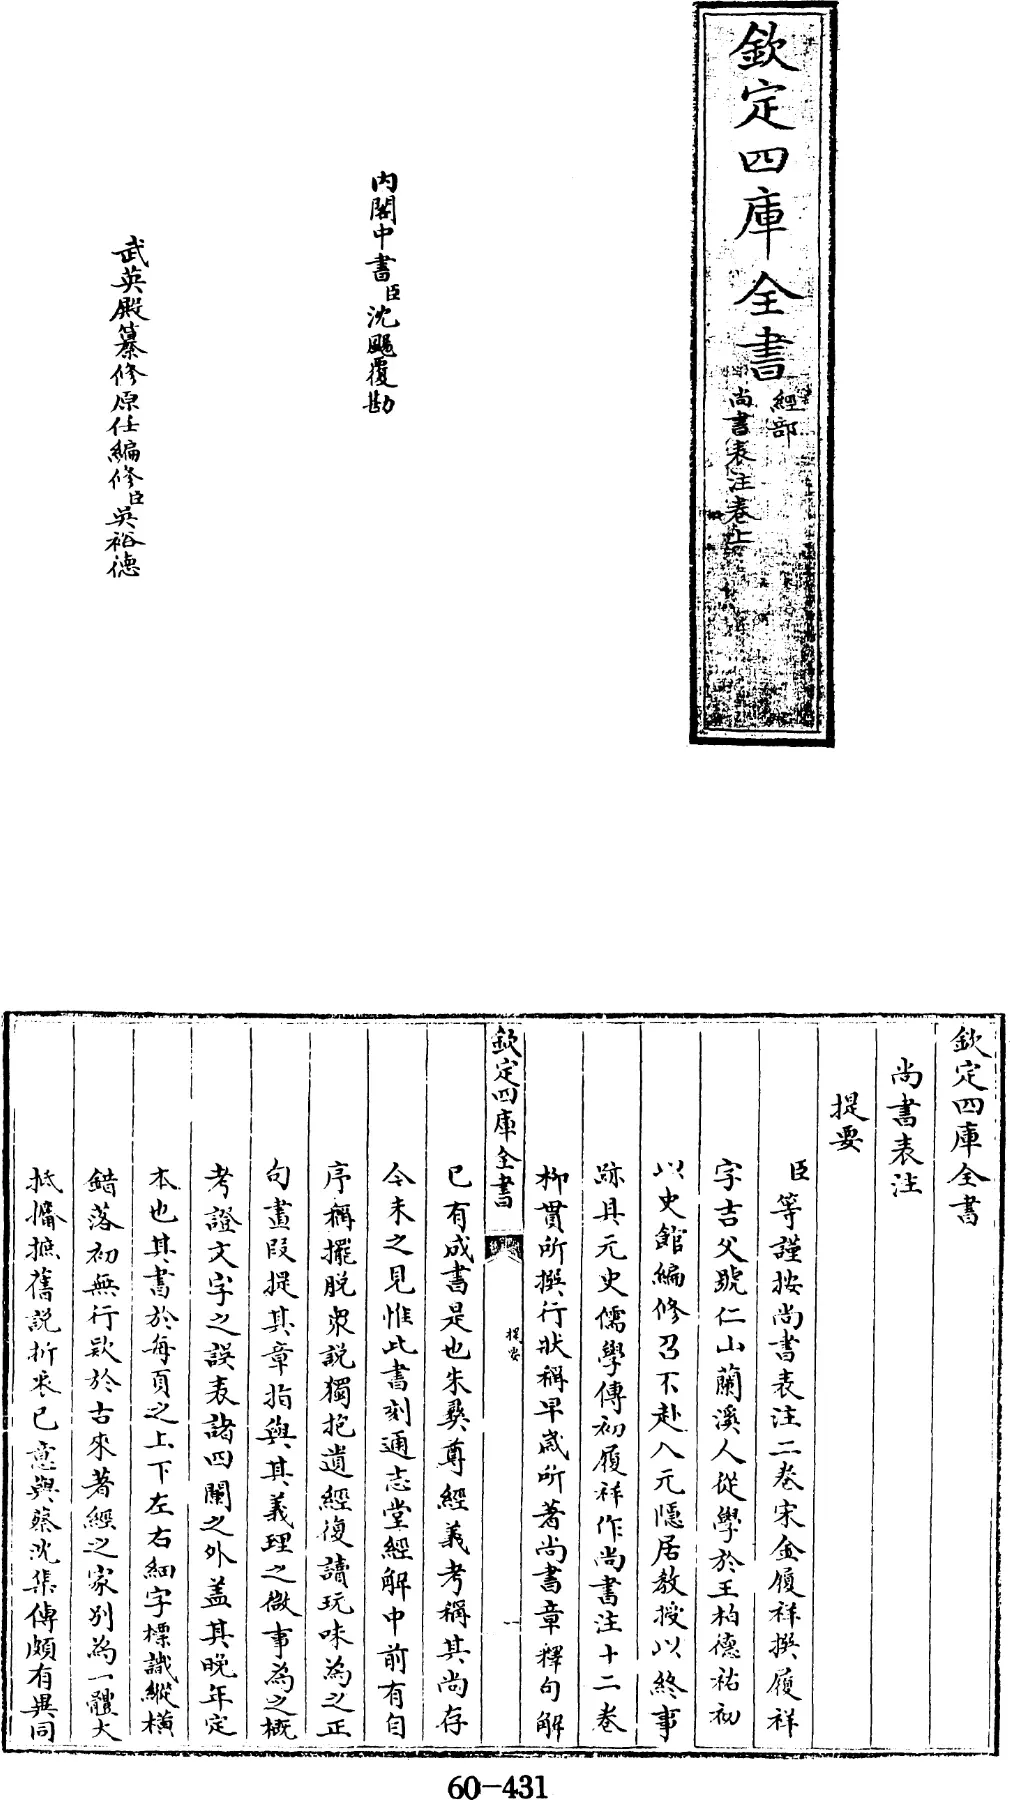 欽定四庫全書
經部
尚書表注卷上
內閣中書臣沈颺覆勘
武英殿纂修原任編修臣吳裕德
欽定四庫全書
尚書表注
提要
臣等謹按尚書表注二卷宋金履祥撰履祥
字吉父號仁山蘭溪人從學於王柏德祐初
以史館編修召不赴入元隱居教授以終事
跡具元史儒學傳初履祥作尚書注十二卷
柳貫所撰行狀稱早歲所著尚書章釋句解
欽定四庫全書
提要
一
已有成書是也朱彞尊經義考稱其尚存
今未之見惟此書刻通志堂經解中前有自
序稱擺脫衆說獨抱遺經復讀玩味為之正
句畫段提其章指與其義理之微事為之概
考證文字之誤表諸四闌之外盖其晚年定
本也其書於每頁之上下左右細字標識縱橫
錯落初無行款於古來著經之家别為一體大
抵攟摭舊說折衷已意與蔡沈集傳頗有異同
60-431